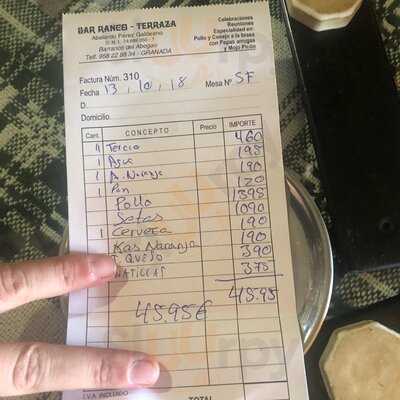 BAR RANCO - TERRAZA
Abelardo Pérez Galdeano
Barranco del Abogao
Telf. 958 22 88 34 - GRANADA
Celebraciones
Reuniones
Especialidad en:
Pollo y Conejo a la brasa
con Papas arrugas
y Mojo Picón
Factura Núm. 310
Fecha 13, 10, 18 Mesa Nº SF
D.
Domicilio
Cant. CONCEPTO Precio IMPORTE
Tercio 460
1 Agua 195
1 A. Naranja 190
1 Pan 120
Pollo 1395
Setas 1090
1 Cerveza 190
Kas Naranja 190
T. QUESO 390
NATILLAS 375
45.95
45.95€
I.V.A. INCLUIDO TOTAL